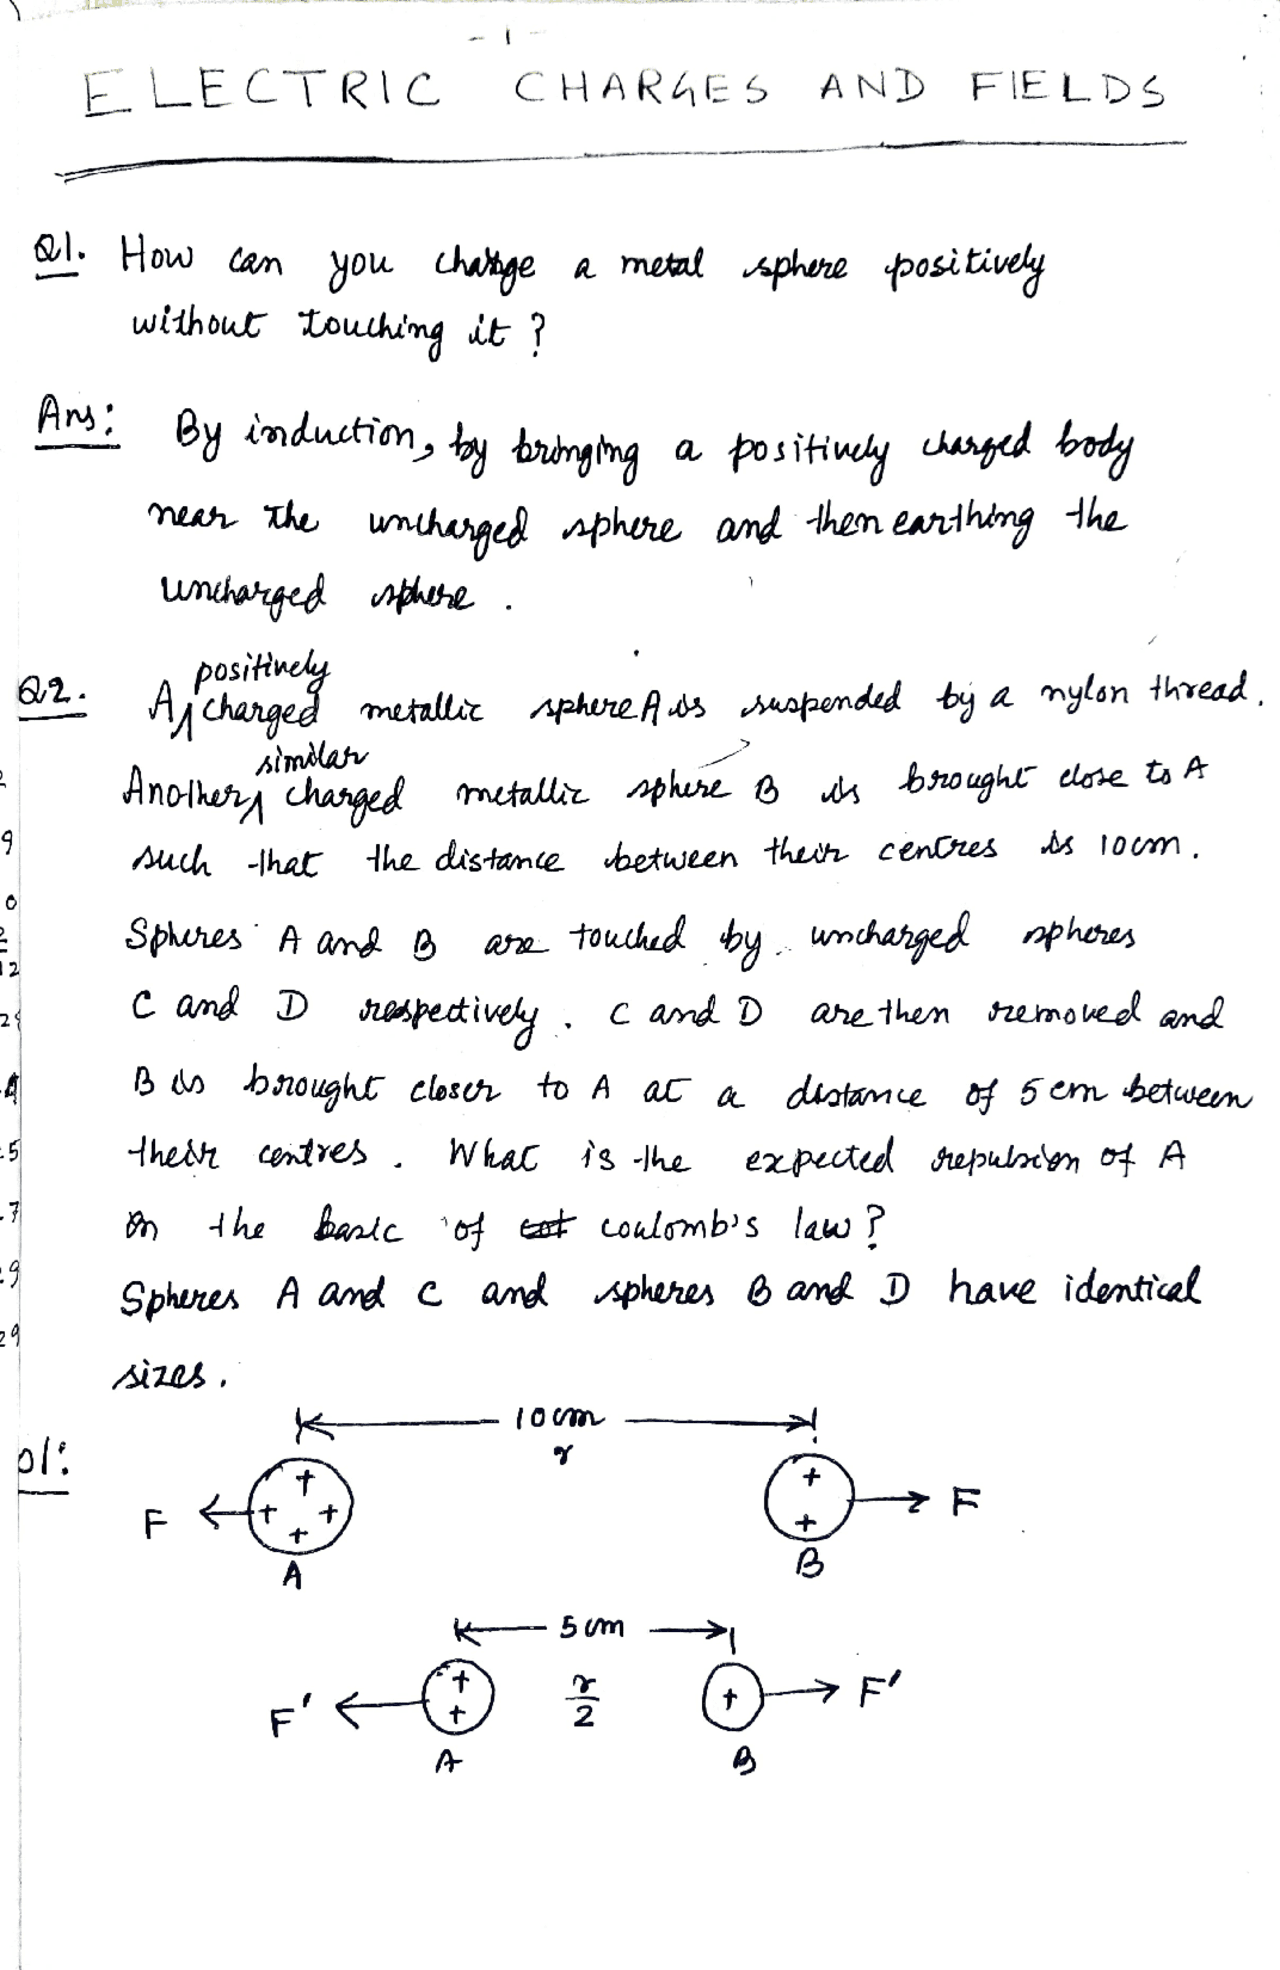 - 1 -
ELECTRIC CHARGES AND FIELDS
Q1. How can you charge a metal sphere positively
without touching it ?
Ans: By induction, by bringing a positively charged body
near the uncharged sphere and then earthing the
uncharged sphere .
positively
Q2. A charged metallic sphere A is suspended by a nylon thread.
similar
Another charged metallic sphere B is brought close to A
such that the distance between their centres is 10cm.
Spheres A and B are touched by uncharged spheres
C and D respectively. C and D are then removed and
B is brought closer to A at a distance of 5 cm between
their centres. What is the expected repulsion of A
on the basic of coulomb's law ?
Spheres A and C and spheres B and D have identical
sizes.
10cm
r
ol:
F + + + + + + F
A B
5cm
F' + + r/2 + F'
A B
2
9
0
2
12
29
5
7
9
29